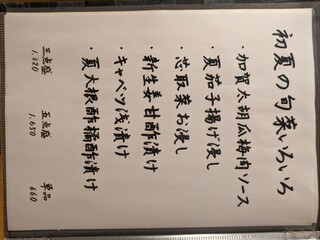 初夏の旬菜いろいろ
・加賀太胡瓜梅肉ソース
・夏茄子揚げ浸し
・芯取菜お浸し
・新生姜甘酢漬け
・キャベツ浅漬け
・夏大根酢橘酢漬け
三点盛 1,320
五点盛 1,650
単品 660